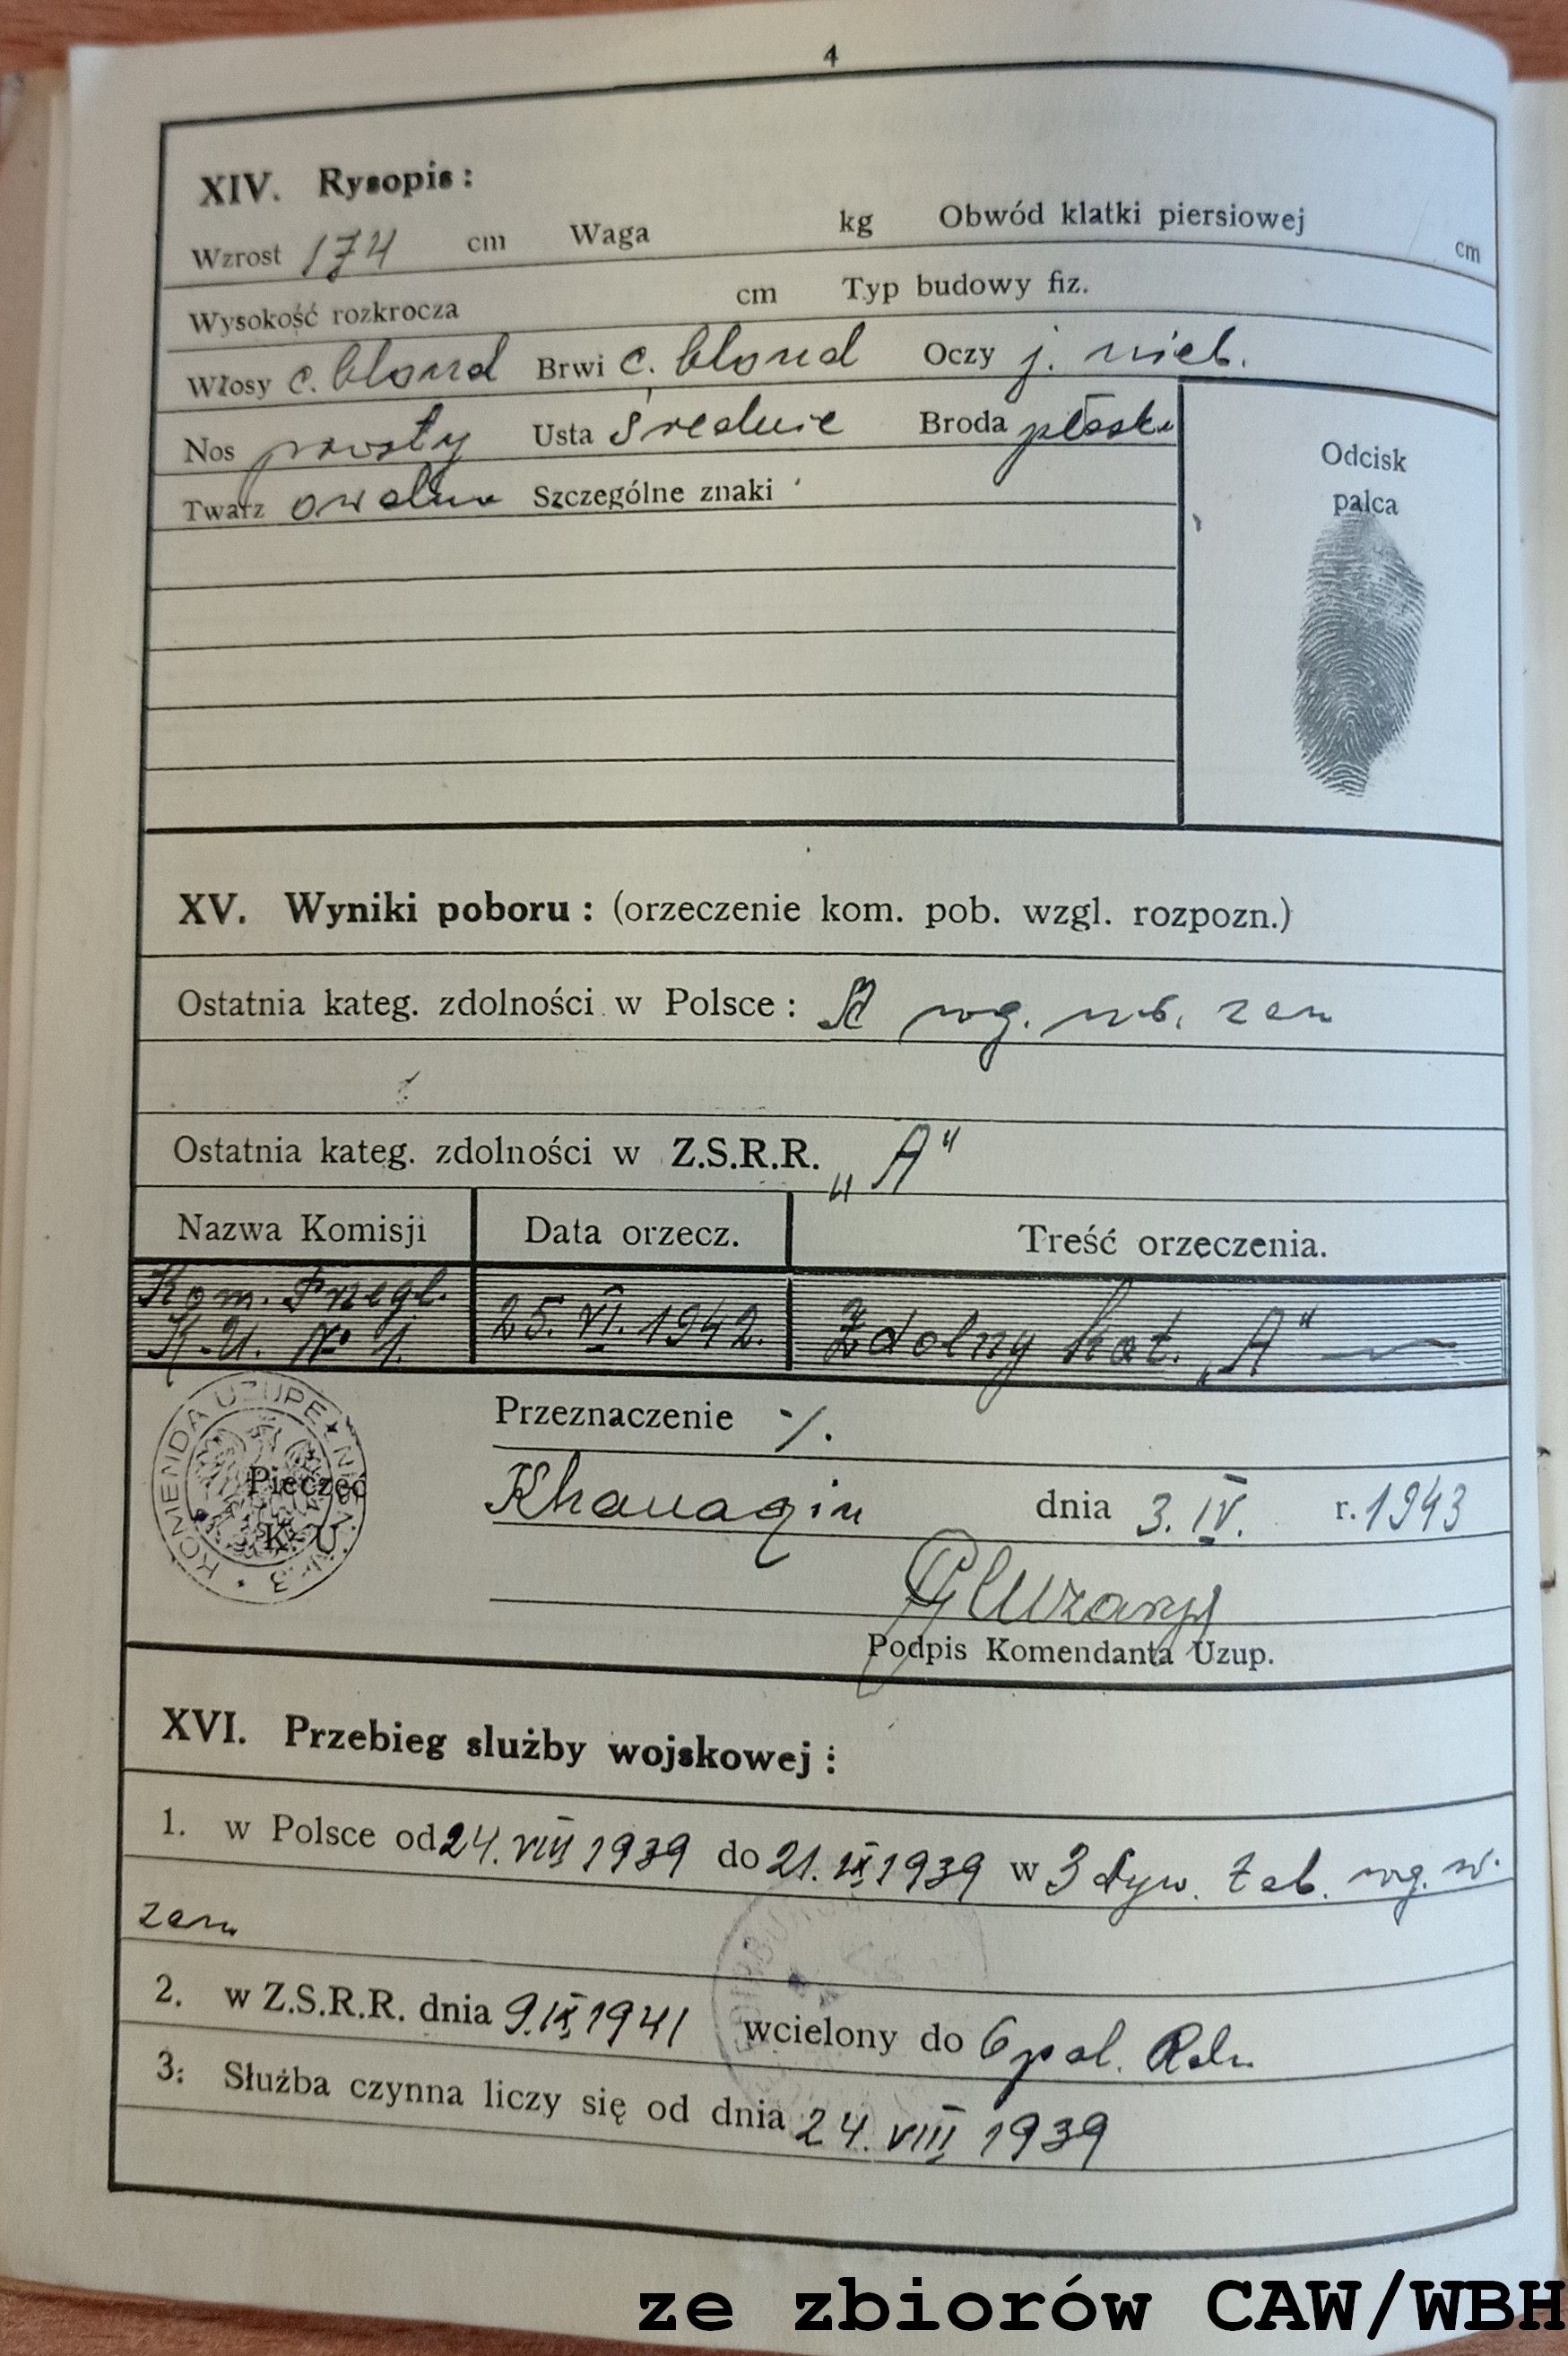 4
XIV. Rysopis :
Wzrost 174 cm Waga kg Obwód klatki piersiowej cm
Wysokość rozkrocza cm Typ budowy fiz.
Włosy c. blond Brwi c. blond Oczy j. nieb.
Nos prosty Usta średnie Broda płaska
Twarz owalna Szczególne znaki
Odcisk
palca
XV. Wyniki poboru : (orzeczenie kom. pob. wzgl. rozpozn.)
Ostatnia kateg. zdolności w Polsce : A wg. wł. zezn
Ostatnia kateg. zdolności w Z.S.R.R. „A"
Nazwa Komisji Data orzecz. Treść orzeczenia.
Kom. Przegl.
K.U. No 1. 25. VI. 1942. Zdolny kat. „A"
Przeznaczenie -/.
KOMENDA UZUPEŁNIEŃ Nr. 3
Pieczęć
K U
Khanaqin dnia 3. IV. r. 1943
Podpis Komendanta Uzup.
XVI. Przebieg służby wojskowej :
1. w Polsce od 24. VIII 1939 do 21. IX 1939 w 3 dyw. tab. wg. w.
zezn
2. w Z.S.R.R. dnia 9. IX 1941 wcielony do 6 pal. Rdn
3. Służba czynna liczy się od dnia 24. VIII 1939
ze zbiorów CAW/WBH